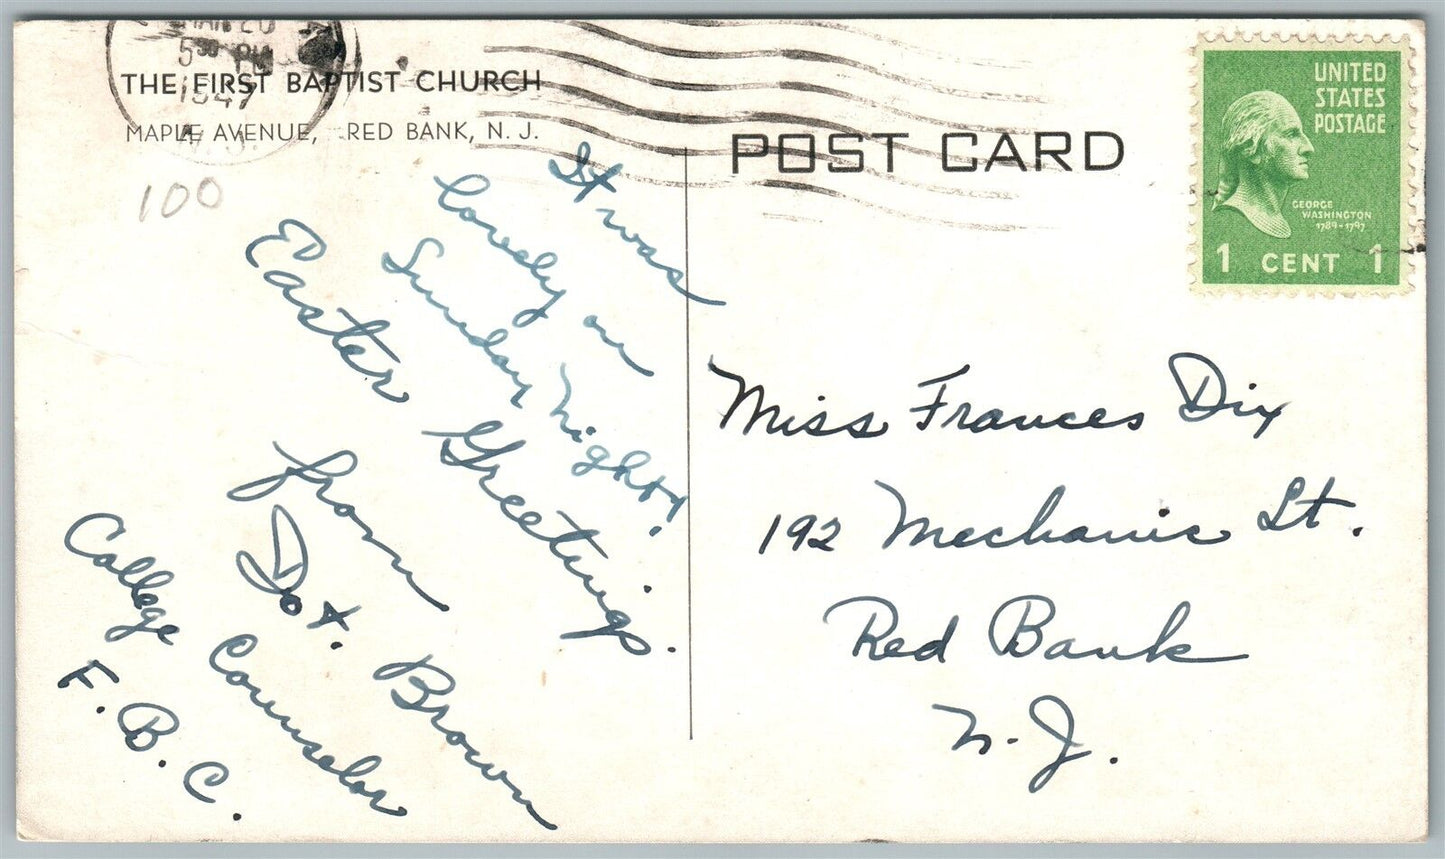 5 30 PM
1947
THE FIRST BAPTIST CHURCH
MAPLE AVENUE, RED BANK, N. J.
100
POST CARD
UNITED
STATES
POSTAGE
GEORGE
WASHINGTON
1789-1797
1 CENT 1
It was
lovely on
Sunday night,
Easter Greetings.
from
Dot. Brown
College Counselor
F. B. C.
Miss Frances Dix
192 Mechanic St.
Red Bank
N. J.